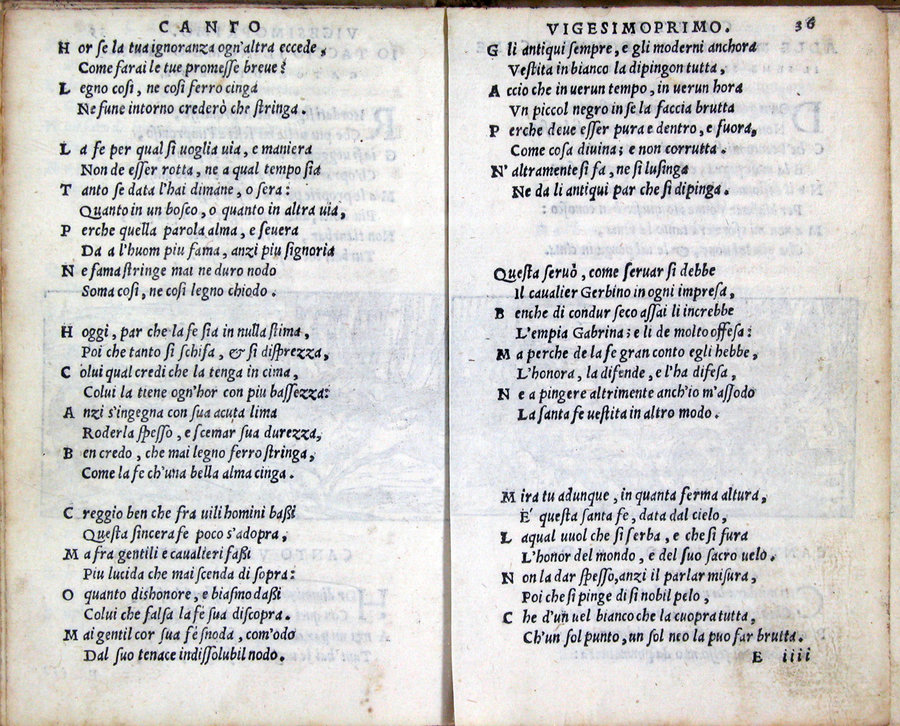 CANTO
H or se la tua ignoranza ogn'altra eccede,
Come farai le tue promesse breue?
L egno cosi, ne cosi ferro cinga
Ne fune intorno crederò che stringa.
L a fe per qual si uoglia uia, e maniera
Non de esser rotta, ne a qual tempo sia
T anto se data l'hai dimane, o sera:
Quanto in un bosco, o quanto in altra uia,
P erche quella parola alma, e seuera
Da a l'huom piu fama, anzi piu signoria
N e fama stringe mai ne duro nodo
Soma cosi, ne cosi legno chiodo.
H oggi, par che la fe sia in nulla stima,
Poi che tanto si schifa, & si disprezza,
C olui qual credi che la tenga in cima,
Colui la tiene ogn'hor con piu bassezza:
A nzi s'ingegna con sua acuta lima
Roderla spesso, e scemar sua durezza,
B en credo, che mai legno ferro stringa,
Come la fe ch'una bella alma cinga.
C reggio ben che fra uili homini bassi
Questa sincera fe poco s'adopra,
M a fra gentili e caualieri fassi
Piu lucida che mai scenda di sopra:
O quanto dishonore, e biasmo dassi
Colui che falsa la fe sua discopra.
M ai gentil cor sua fé snoda, com'odo
Dal suo tenace indissolubil nodo.
VIGESIMOPRIMO. 36
G li antiqui sempre, e gli moderni anchora
Vestita in bianco la dipingon tutta,
A ccio che in uerun tempo, in uerun hora
Vn piccol negro in se la faccia brutta
P erche deue esser pura e dentro, e fuora,
Come cosa diuina; e non corrutta.
N' altramente si fa, ne si lusinga
Ne da li antiqui par che si dipinga.
Questa seruò, come seruar si debbe
Il caualier Gerbino in ogni impresa,
B enche di condur seco assai li increbbe
L'empia Gabrina; e li de molto offesa:
M a perche de la fe gran conto egli hebbe,
L'honora, la difende, e l'ha difesa,
N e a pingere altrimente anch'io m'assodo
La santa fe uestita in altro modo.
M ira tu adunque, in quanta ferma altura,
E' questa santa fe, data dal cielo,
L aqual uuol che si serba, e che si fura
L'honor del mondo, e del suo sacro uelo.
N on la dar spesso, anzi il parlar misura,
Poi che si pinge di si nobil pelo,
C he d'un uel bianco che la cuopra tutta,
Ch'un sol punto, un sol neo la puo far brutta.
E iiii